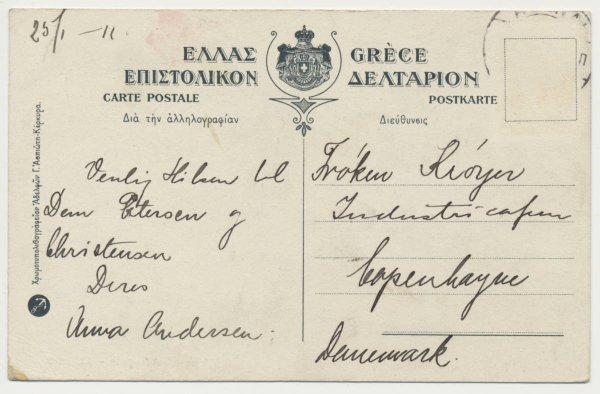 25/1 - 11
ΕΛΛΑΣ GRÈCE
ΕΠΙΣΤΟΛΙΚΟΝ ΔΕΛΤΑΡΙΟΝ
CARTE POSTALE POSTKARTE
Διὰ τὴν ἀλληλογραφίαν Διεύθυνσις
Venlig Hilsen til
Dem Petersen og
Christensen
Deres
Anna Andersen.
Frøken Krøyer
Industricafeen
Copenhagne
Danemark.
Χρωμοτυπολιθογραφεῖον Ἀδελφῶν Γ. Ἀσπιώτη-Κέρκυρα.